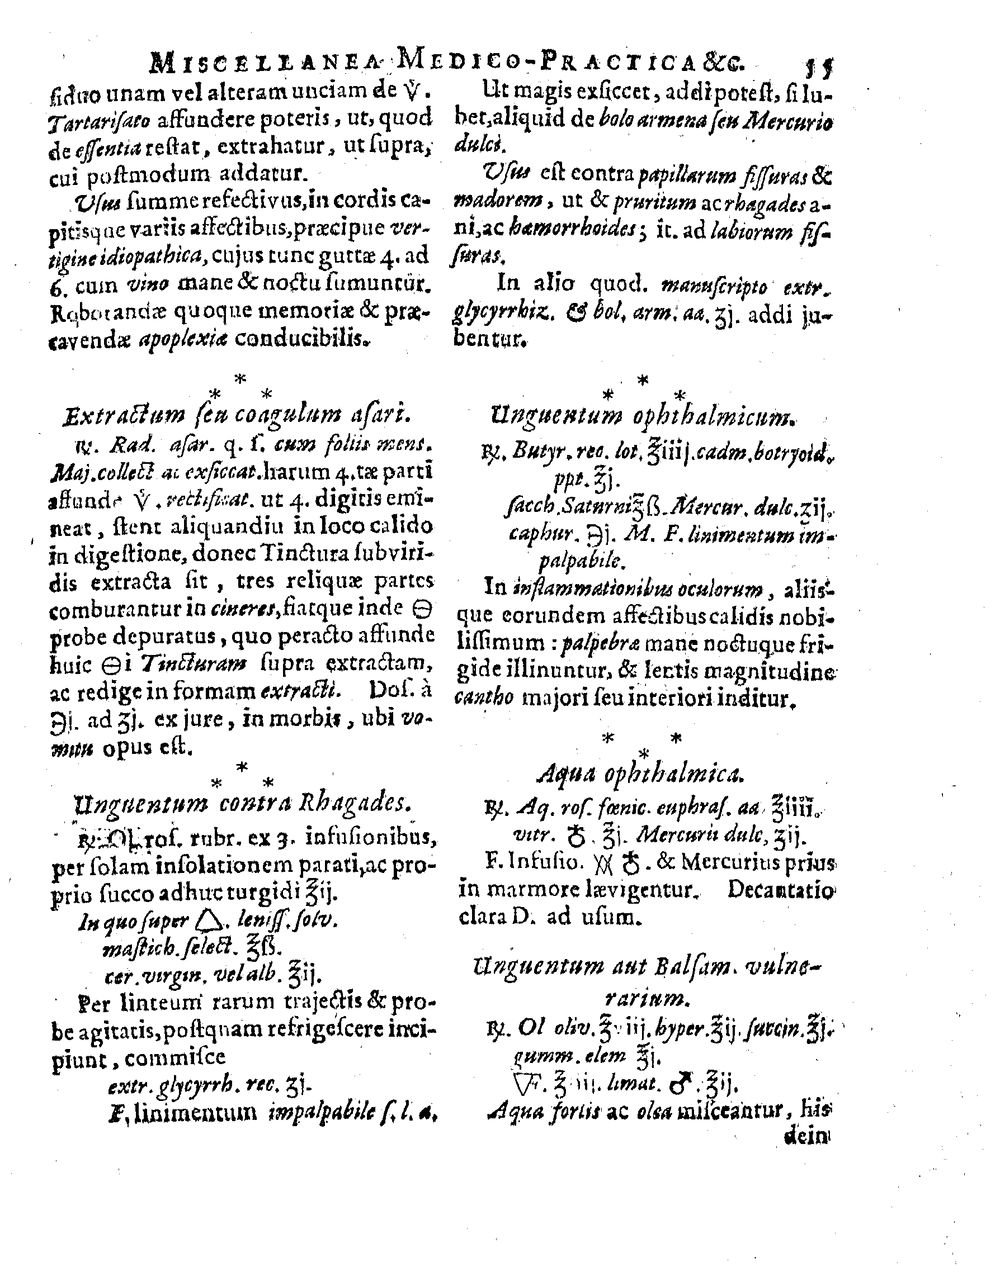 MISCELLANEA MEDICO-PRACTICA &c. 55
siduo unam vel alteram unciam de V̇.
Tartarisato affundere poteris, ut, quod
de essentia restat, extrahatur, ut supra,
cui postmodum addatur.
Usus summe refectivus, in cordis ca-
pitisque variis affectibus, præcipue ver-
tigine idiopathica, cujus tunc guttæ 4. ad
6. cum vino mane & noctu sumuntur.
Roborandæ quoque memoriæ & præ-
cavendæ apoplexiæ conducibilis.
* * *
Extractum seu coagulum asari.
℞. Rad. asar. q. s. cum foliis mens.
Maj. collect ac exsiccat. harum 4. tæ parti
affunde V̇. rectificat. ut 4. digitis emi-
neat, stent aliquandiu in loco calido
in digestione, donec Tinctura subviri-
dis extracta sit, tres reliquæ partes
comburantur in cineres, fiatque inde 🜔
probe depuratus, quo peracto affunde
huic 🜔i Tincturam supra extractam,
ac redige in formam extracti. Dos. à
℈j. ad ʒj. ex jure, in morbis, ubi vo-
mitu opus est.
* * *
Unguentum contra Rhagades.
℞. Ol. ros. rubr. ex 3. infusionibus,
per solam insolationem parati, ac pro-
prio succo adhuc turgidi ℥ij.
In quo super 🜂. leniss. solv.
mastich. select. ℥ß.
cer. virgin. vel alb. ℥ij.
Per linteum rarum trajectis & pro-
be agitatis, postquam refrigescere inci-
piunt, commisce
extr. glycyrrh. rec. ʒj.
F. linimentum impalpabile s. l. a.
Ut magis exsiccet, addi potest, si lu-
bet, aliquid de bolo armena seu Mercurio
dulci.
Usus est contra papillarum fissuras &
madorem, ut & pruritum ac rhagades a-
ni, ac hæmorrhoides; it. ad labiorum fis-
suras.
In alio quod. manuscripto extr.
glycyrrhiz. & bol. arm. aa. ʒj. addi ju-
bentur.
* * *
Unguentum ophthalmicum.
℞. Butyr. rec. lot. ℥iiij. cadm. botryoid.
ppt. ℥j.
sacch. Saturni ℥ß. Mercur. dulc. ʒij.
caphur. ℈j. M. F. linimentum im-
palpabile.
In inflammationibus oculorum, aliis-
que eorundem affectibus calidis nobi-
lissimum: palpebræ mane noctuque fri-
gide illinuntur, & lentis magnitudine
cantho majori seu interiori inditur.
* * *
Aqua ophthalmica.
℞. Aq. ros. fœnic. euphras. aa ℥iiii.
vitr. ♁. ℥j. Mercurii dulc, ʒij.
F. Infusio. ♁. & Mercurius prius
in marmore lævigentur. Decantatio
clara D. ad usum.
Unguentum aut Balsam. vulne-
rarium.
℞. Ol oliv. ℥viij. hyper. ℥ij. succin. ℥j.
gumm. elem ℥j.
🜅. ℥iij. limat. ♂. ℥ij.
Aqua fortis ac olea misceantur, his
dein